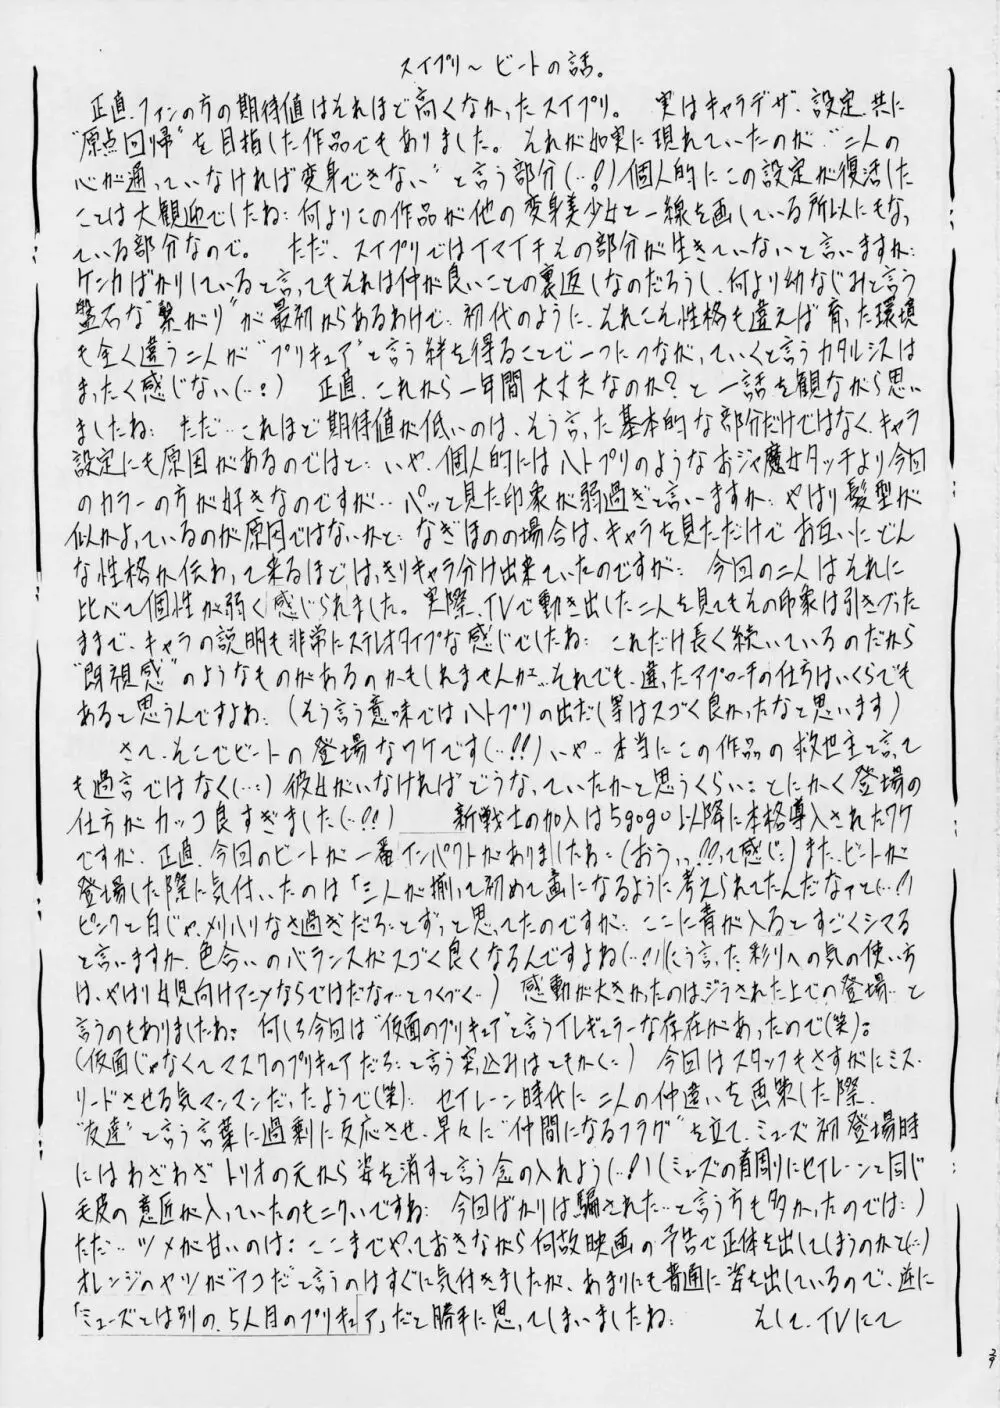 スイプリ～ビートの話。
正直、ファンの方の期待値はそれほど高くなかったスイプリ。 実はキャラデザ、設定、共に
"原点回帰"を目指した作品でもありました。それが如実に現れていたのが、"二人の
心が通っていなければ変身できない"と言う部分(…!)個人的にこの設定が復活した
ことは大歓迎でしたね…何よりこの作品が他の変身美少女と一線を画している所以にもなっ
ている部分なので。 ただ、スイプリではイマイチその部分が生きていないと言いますか…
ケンカばかりしていると言ってもそれは仲が良いことの裏返しなのだろうし、何より幼なじみと言う
盤石な"繋がり"が最初からあるわけで…初代のように、それこそ性格も違えば育った環境
も全く違う二人が"プリキュア"と言う絆を得ることで一つにつながっていくと言うカタルシスは
まったく感じない(…!) 正直、これから一年間大丈夫なのか?と一話を観ながら思い
ましたね… ただ…これほど期待値が低いのは、そう言った基本的な部分だけではなく、キャラ
設定にも原因があるのではと…いや、個人的にはハトプリのようなおジャ魔女タッチより今回
のカラーの方が好きなのですが…パッと見た印象が弱過ぎと言いますか…やはり髪型が
似かよっているのが原因ではないかと…なぎほのの場合は、キャラを見ただけでお互いにどん
な性格か伝わって来るほどはっきりキャラ分け出来ていたのですが… 今回の二人はそれに
比べて個性が弱く感じられました。実際、TVで動き出した二人を見てもその印象は引きずった
ままで、キャラの説明も非常にステレオタイプな感じでしたね… これだけ長く続いているのだから
"既視感"のようなものがあるのかもしれませんが…それでも、違ったアプローチの仕方はいくらでも
あると思うんですよね…(そう言う意味ではハトプリの出だし等はスゴく良かったなと思います)
さて、そこでビートの登場なワケです(…!!)いや…本当にこの作品の救世主と言って
も過言ではなく(…)彼女がいなければどうなっていたかと思うくらい…とにかく登場の
仕方がカッコ良すぎました(…!!) 新戦士の加入は5gogo以降に本格導入されたワケ
ですが、正直、今回のビートが一番インパクトがありましたね…(おうっ…!!って感じ…)また、ビートが
登場した際に気付いたのは「三人が揃って初めて画になるように考えられてたんだなァと(…!)
ピンクと白じゃ、メリハリなさ過ぎだろ…とずっと思ってたのですが…ここに青が入るとすごくシマる
と言いますか、色合いのバランスがスゴく良くなるんですよね(…!)(こう言った彩りへの気の使い方
は、やはり女児向けアニメならではだなァ…とつくづく…) 感動が大きかったのはジラされた上での登場…と
言うのもありましたね… 何しろ今回は"仮面のプリキュア"と言うイレギュラーな存在があったので(笑)…
(仮面じゃなくてマスクのプリキュアだろ…と言う突込みはともかく…) 今回はスタッフもさすがにミス
リードさせる気マンマンだったようで(笑)… セイレーン時代に二人の仲違いを画策した際、
"友達"と言う言葉に過剰に反応させ、早々に"仲間になるフラグ"を立て、ミューズ初登場時
にはわざわざトリオの元から姿を消すと言う念の入れよう(…!)(ミューズの首周りにセイレーンと同じ
毛皮の意匠が入っていたのもニクいですね… 今回ばかりは騙された…と言う方も多かったのでは…)
ただ…ツメが甘いのは…ここまでやっておきながら何故映画の予告で正体を出してしまうのかと(…)
オレンジのヤツが"アコだ"と言うのはすぐに気付きましたが、あまりにも普通に姿を出しているので、逆に
「ミューズとは別の、5人目のプリキュア」だと勝手に思ってしまいましたね… そして、TVにて